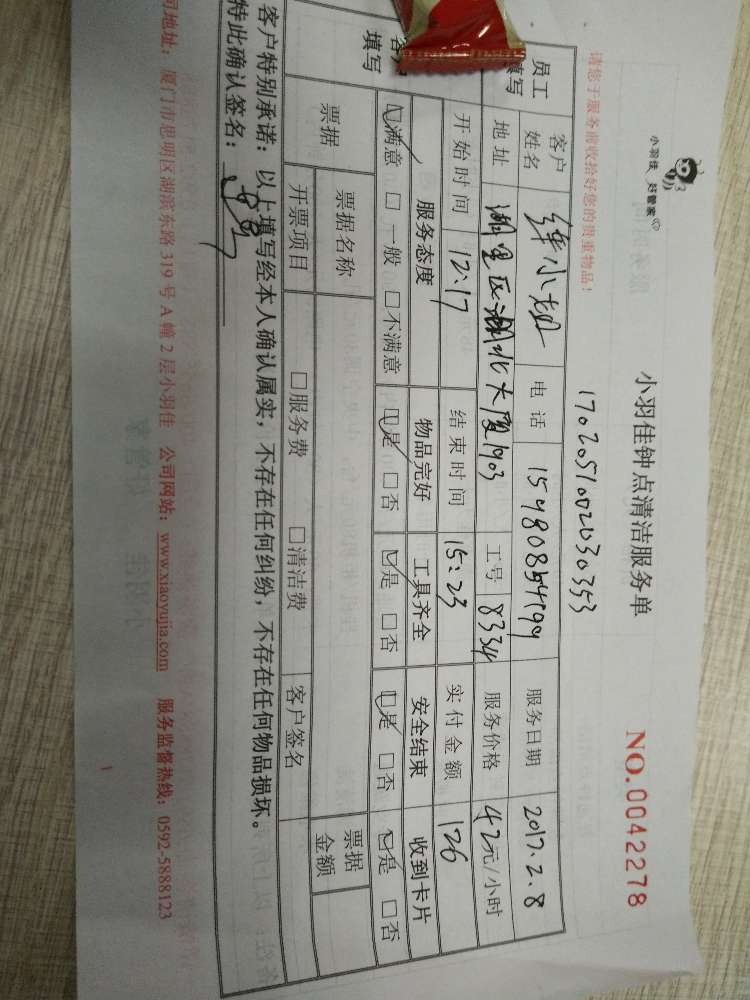 小羽佳 好管家
小羽佳钟点清洁服务单
NO.0042278
请您于服务前收拾好您的贵重物品!
1702051002030353
员工填写 客户姓名 小姐 电话 服务日期 2017.2.8
地址 湖里区湖北大厦1903 工号 8334 服务价格 42元/小时
开始时间 12:17 结束时间 15:23 实付金额 126
客户填写 服务态度 物品完好 工具齐全 安全结束 收到卡片
☑满意 □一般 □不满意 ☑是 □否 ☑是 □否 ☑是 □否 ☑是 □否
票据 票据名称 票据金额
开票项目 □服务费 □清洁费 客户签名
客户特别承诺：以上填写经本人确认属实，不存在任何纠纷，不存在任何物品损坏。
特此确认签名：
司地址：厦门市思明区湖滨东路319号A幢2层小羽佳 公司网站：www.xiaoyujia.com 服务监督热线：0592-5888123